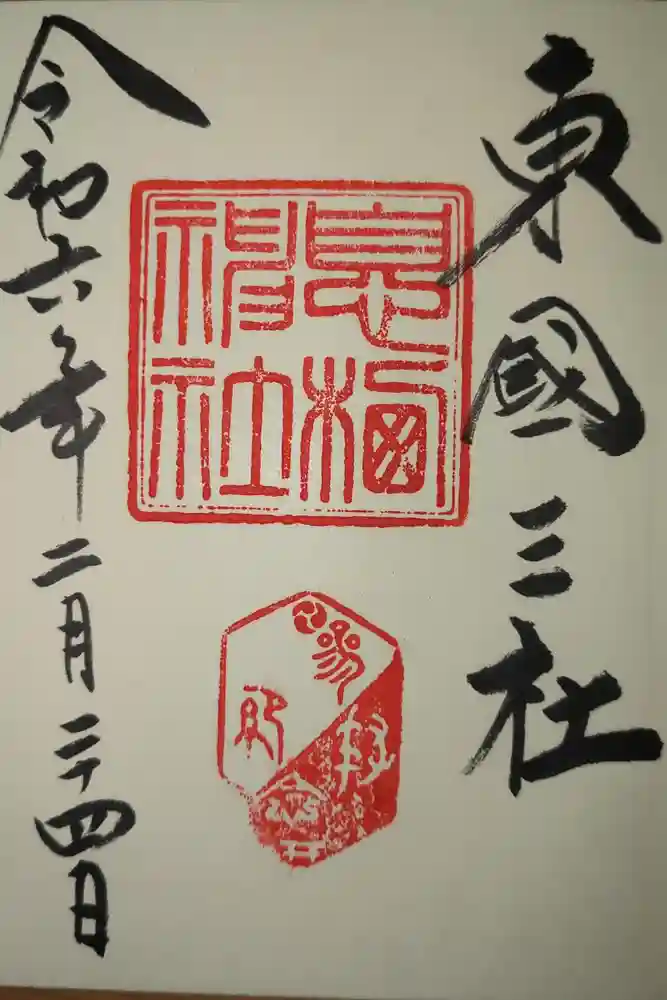 東國三社
息栖
神社
参拝
令和六年二月二十四日